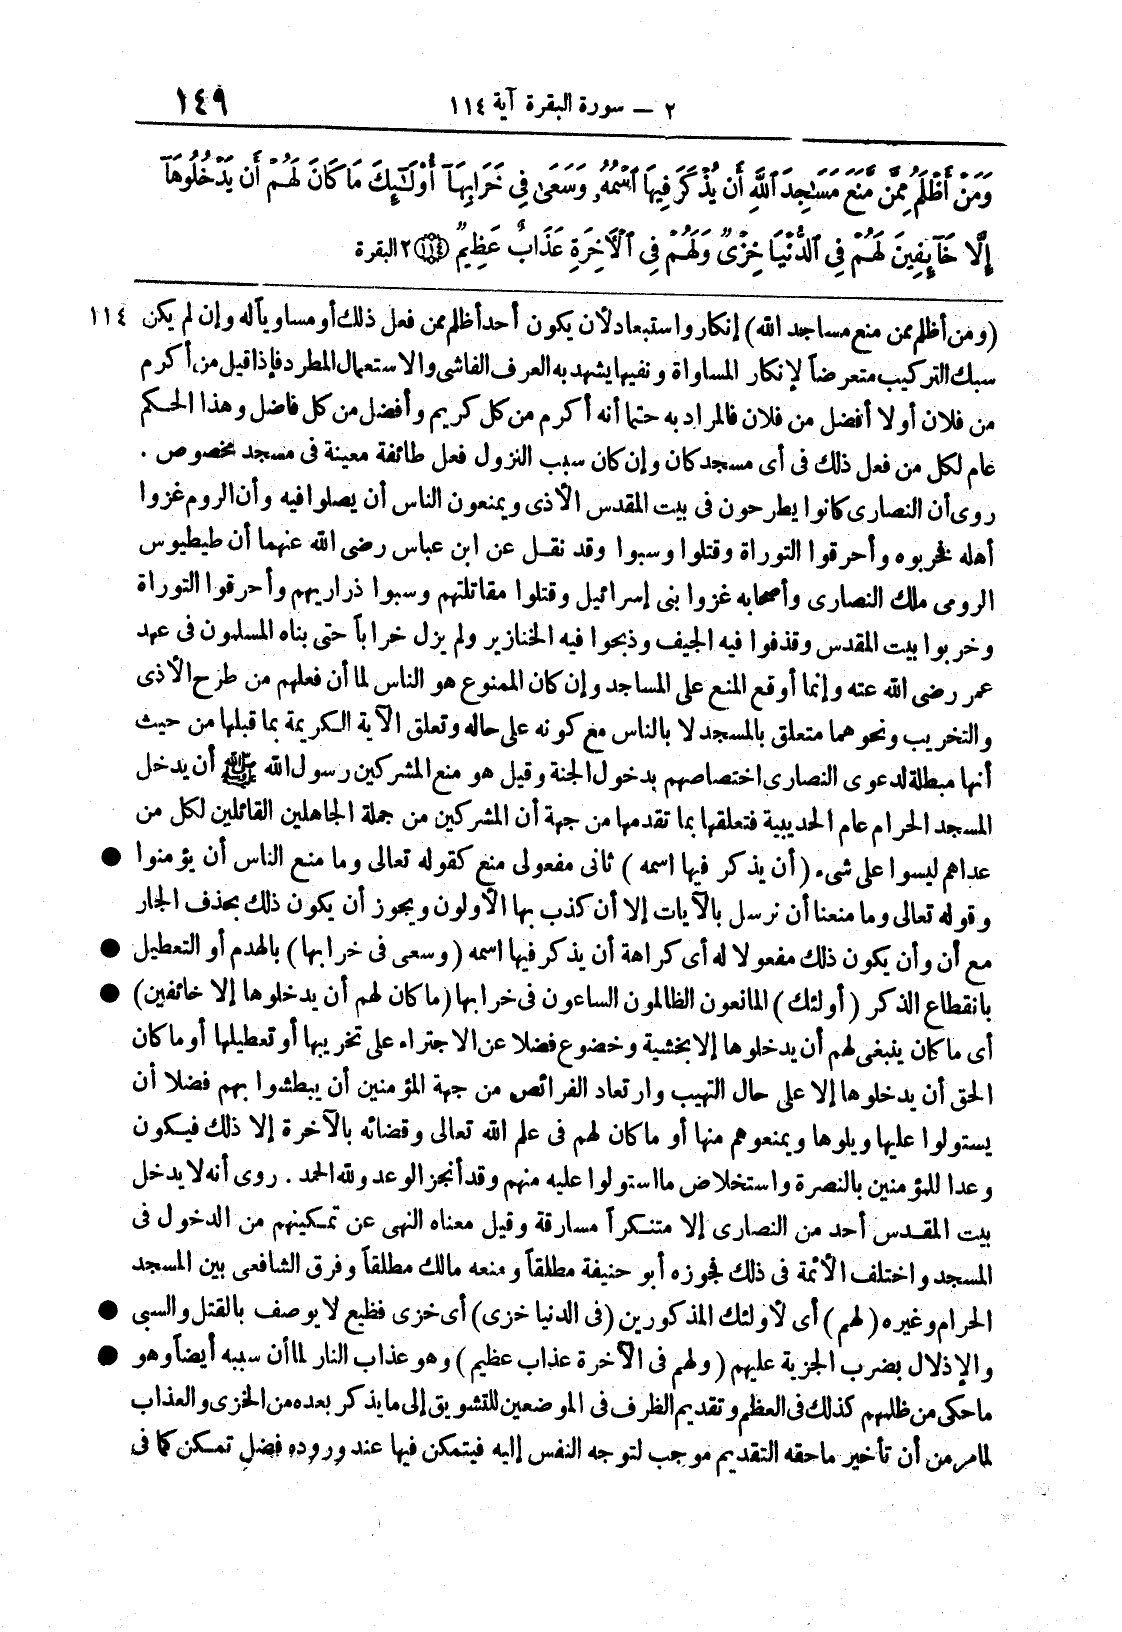 ٢ — سورة البقرة آية ١١٤
١٤٩
وَمَنْ أَظْلَمُ مِمَّن مَّنَعَ مَسَٰجِدَ ٱللَّهِ أَن يُذْكَرَ فِيهَا ٱسْمُهُۥ وَسَعَىٰ فِي خَرَابِهَآ أُو۟لَٰٓئِكَ مَا كَانَ لَهُمْ أَن يَدْخُلُوهَآ
إِلَّا خَآئِفِينَ لَهُمْ فِي ٱلدُّنْيَا خِزْىٌ وَلَهُمْ فِي ٱلْءَاخِرَةِ عَذَابٌ عَظِيمٌ ﴿١١٤﴾ ٢ البقرة
(ومن أظلم ممن منع مساجد الله) إنكار واستبعاد لأن يكون أحد أظلم ممن فعل ذلك أو مساوياً له وإن لم يكن ١١٤
سبك التركيب متعرضاً لإنكار المساواة ونفيها يشهد به العرف الفاشى والاستعمال المطرد فإذا قيل من أكرم
من فلان أو لا أفضل من فلان فالمراد به حتما أنه أكرم من كل كريم وأفضل من كل فاضل وهذا الحكم
عام لكل من فعل ذلك فى أى مسجد كان وإن كان سبب النزول فعل طائفة معينة فى مسجد مخصوص .
روى أن النصارى كانوا يطرحون فى بيت المقدس الأذى ويمنعون الناس أن يصلوا فيه وأن الروم غزوا
أهله فخربوه وأحرقوا التوراة وقتلوا وسبوا وقد نقل عن ابن عباس رضى الله عنهما أن طيطيوس
الرومى ملك النصارى وأصحابه غزوا بنى إسرائيل وقتلوا مقاتلتهم وسبوا ذراريهم وأحرقوا التوراة
وخربوا بيت المقدس وقذفوا فيه الجيف وذبحوا فيه الخنازير ولم يزل خراباً حتى بناه المسلمون فى عهد
عمر رضى الله عنه وإنما أوقع المنع على المساجد وإن كان الممنوع هو الناس لما أن فعلهم من طرح الأذى
والتخريب ونحوهما متعلق بالمسجد لا بالناس مع كونه على حاله وتعلق الآية الكريمة بما قبلها من حيث
أنها مبطلة لدعوى النصارى اختصاصهم بدخول الجنة وقيل هو منع المشركين رسول الله ﷺ أن يدخل
المسجد الحرام عام الحديبية فتعلقها بما تقدمها من جهة أن المشركين من جملة الجاهلين القائلين لكل من
عداهم ليسوا على شىء (أن يذكر فيها اسمه) ثانى مفعولى منع كقوله تعالى وما منع الناس أن يؤمنوا ●
وقوله تعالى وما منعنا أن نرسل بالآيات إلا أن كذب بها الأولون ويجوز أن يكون ذلك بحذف الجار
مع أن وأن يكون ذلك مفعولا له أى كراهة أن يذكر فيها اسمه (وسعى فى خرابها) بالهدم أو التعطيل ●
بانقطاع الذكر (أولئك) المانعون الظالمون الساعون فى خرابها (ما كان لهم أن يدخلوها إلا خائفين) ●
أى ما كان ينبغى لهم أن يدخلوها إلا بخشية وخضوع فضلا عن الاجتراء على تخريبها أو تعطيلها أو ما كان
الحق أن يدخلوها إلا على حال التهيب وارتعاد الفرائص من جهة المؤمنين أن يبطشوا بهم فضلا أن
يستولوا عليها ويلوها ويمنعوهم منها أو ما كان لهم فى علم الله تعالى وقضائه بالآخرة إلا ذلك فيكون
وعدا للمؤمنين بالنصرة واستخلاص ما استولوا عليه منهم وقد أنجز الوعد ولله الحمد . روى أنه لا يدخل
بيت المقدس أحد من النصارى إلا متنكراً مسارقة وقيل معناه النهى عن تمكينهم من الدخول فى
المسجد واختلف الأئمة فى ذلك فجوزه أبو حنيفة مطلقاً ومنعه مالك مطلقاً وفرق الشافعى بين المسجد
الحرام وغيره (لهم) أى لأولئك المذكورين (فى الدنيا خزى) أى خزى فظيع لا يوصف بالقتل والسبى ●
والإذلال بضرب الجزية عليهم (ولهم فى الآخرة عذاب عظيم) وهو عذاب النار لما أن سببه أيضاً وهو ●
ما حكى من ظلمهم كذلك فى العظم وتقديم الظرف فى الموضعين للتشويق إلى ما يذكر بعده من الخزى والعذاب
لما مر من أن تأخير ما حقه التقديم موجب لتوجه النفس إليه فيتمكن فيها عند وروده فضل تمكن كما فى